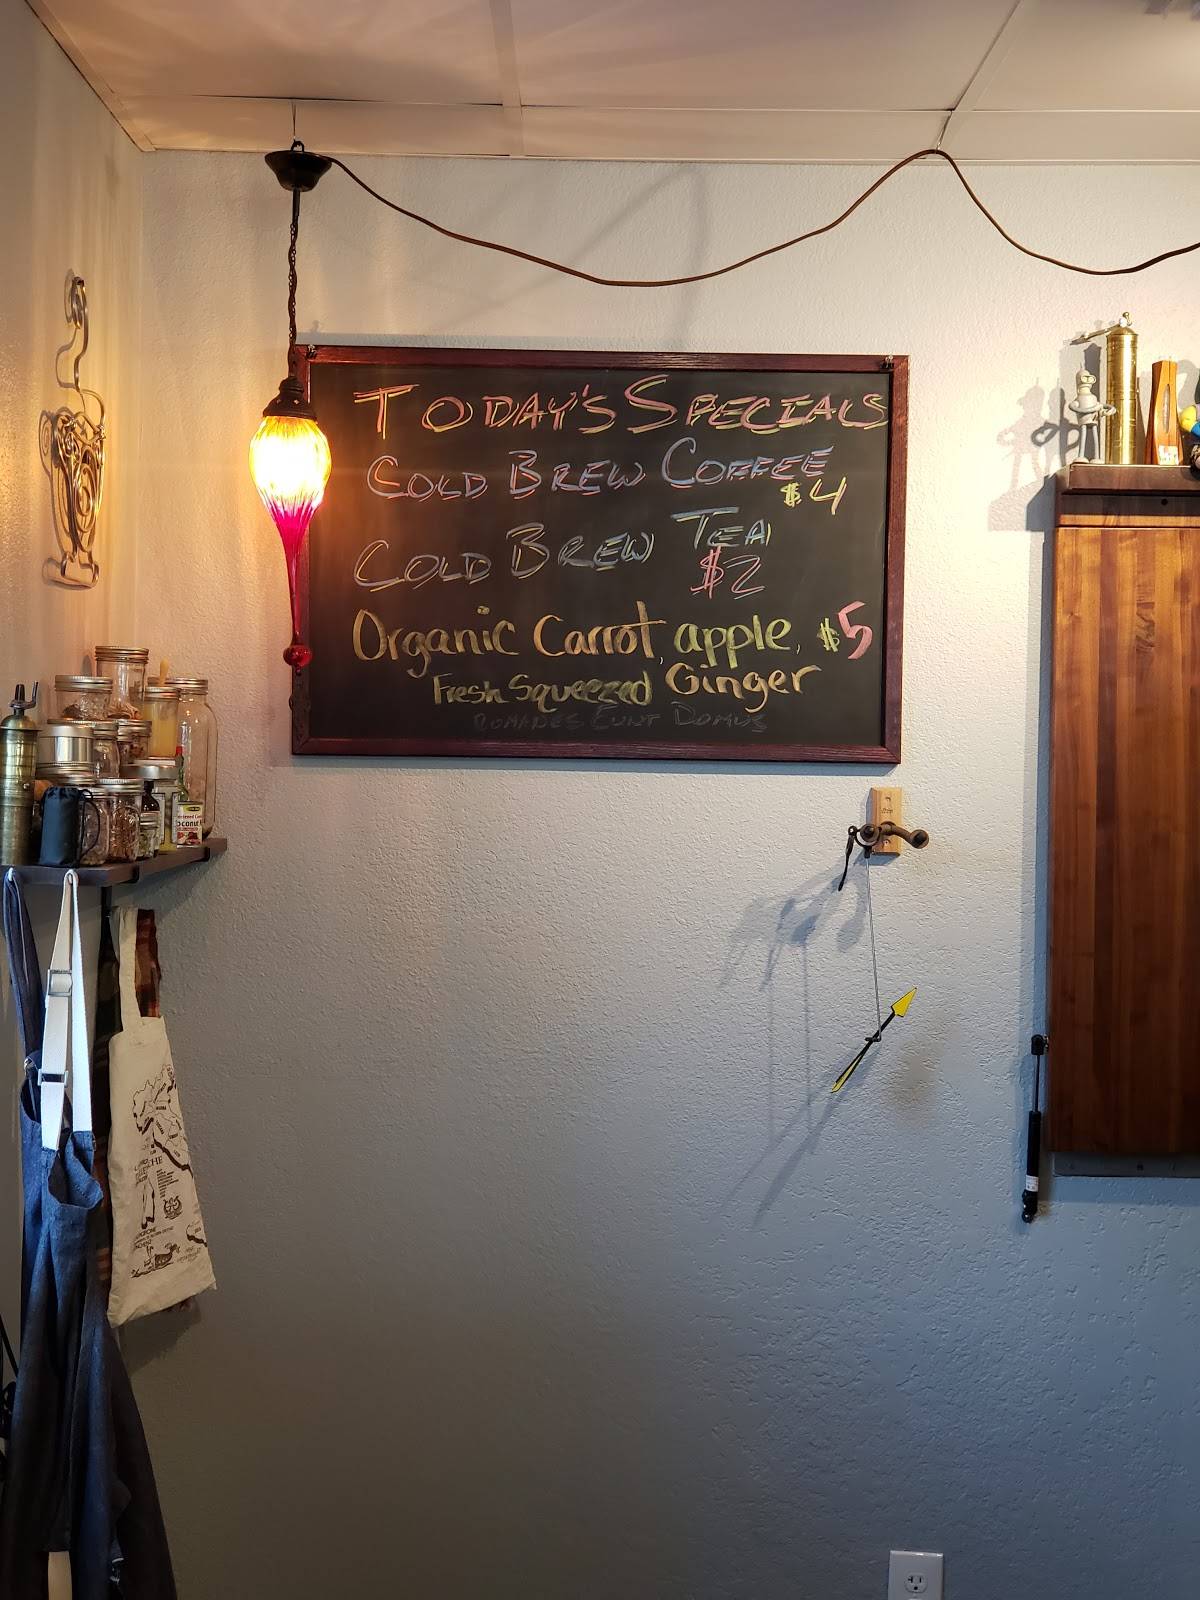 TODAY'S SPECIALS
COLD BREW COFFEE
$4
COLD BREW TEA
$2
Organic Carrot, apple, $5
Fresh Squeezed Ginger
ROMANES EUNT DOMUS